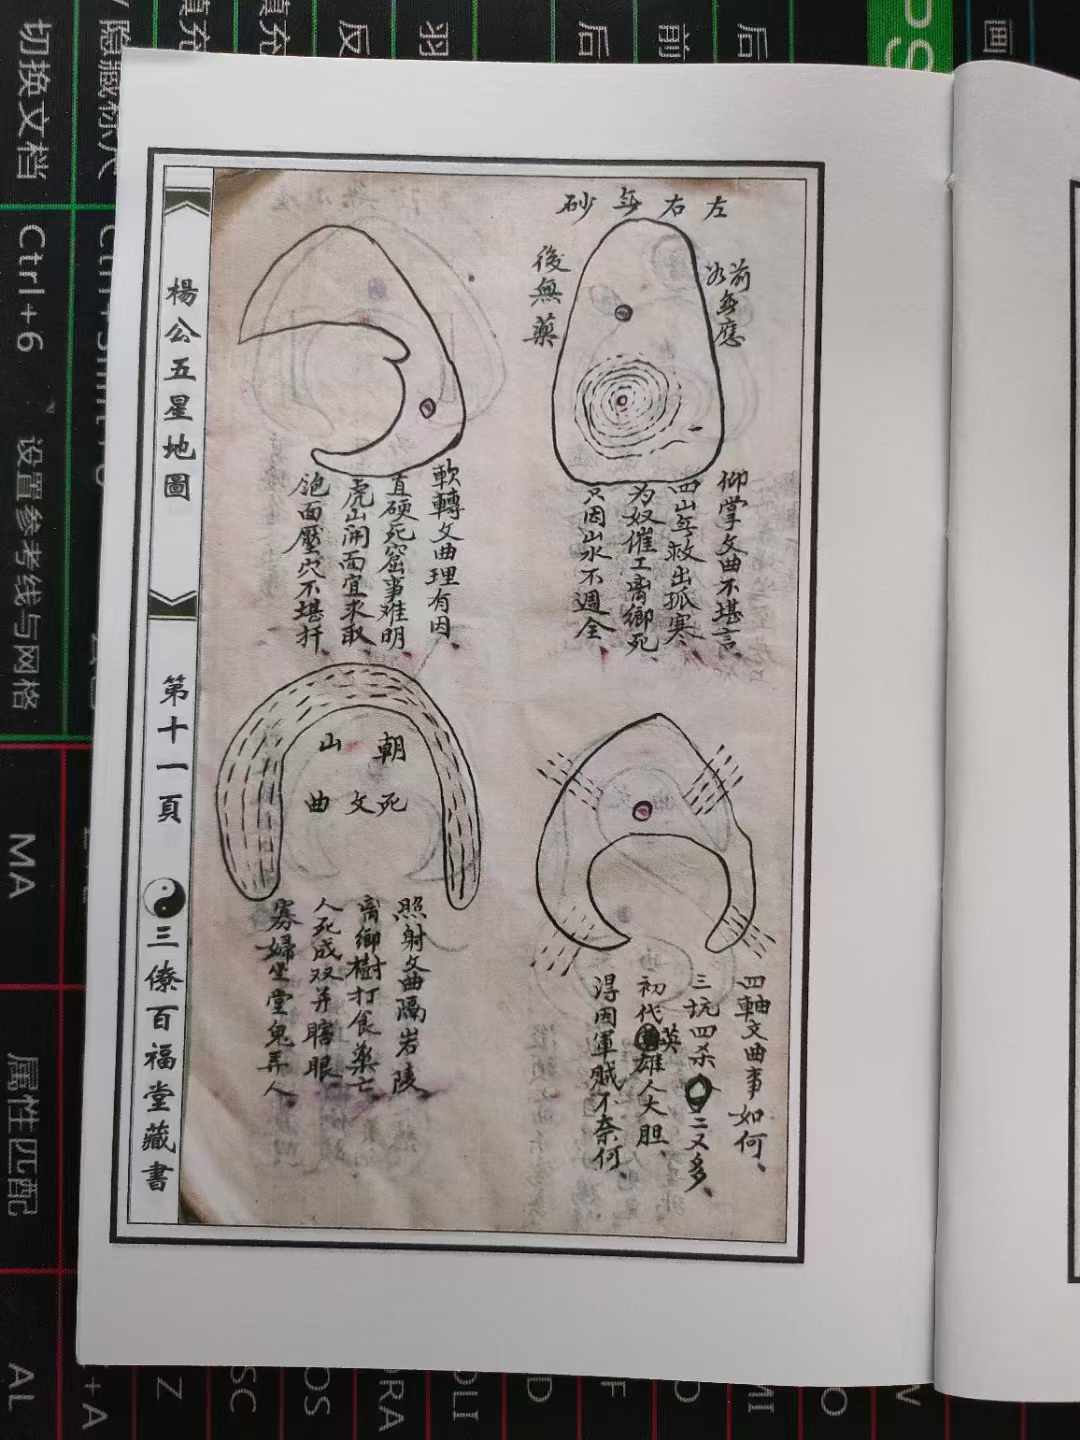 左右無砂
前無應
後無藥
仰掌文曲不堪言、
四山無救出孤寒、
为奴催工离鄉死、
只因山水不週全
軟轉文曲理有因、
直硬死窟事难明
虎山開面宜求取、
飽面壓穴不堪扦、
四軸文曲事如何、
三坑四杀
二又多、
初代英雄人大胆、
淂因軍賊不奈何、
朝山
死文曲
照射文曲隔岩陵
离鄉樹打食藥亡
人死成双并瞎眼
寡婦坐堂鬼弄人、
楊公五星地圖
第十一頁
三僚百福堂藏書
切换文档 Ctrl+6
设置参考线与网格
MA
属性匹配
AL
隐藏标尺
填充
填充
反
羽
后
前
后
画
PS
+A
Z
SC
OS
DRA
OLI
D
F
O
MI
O
V